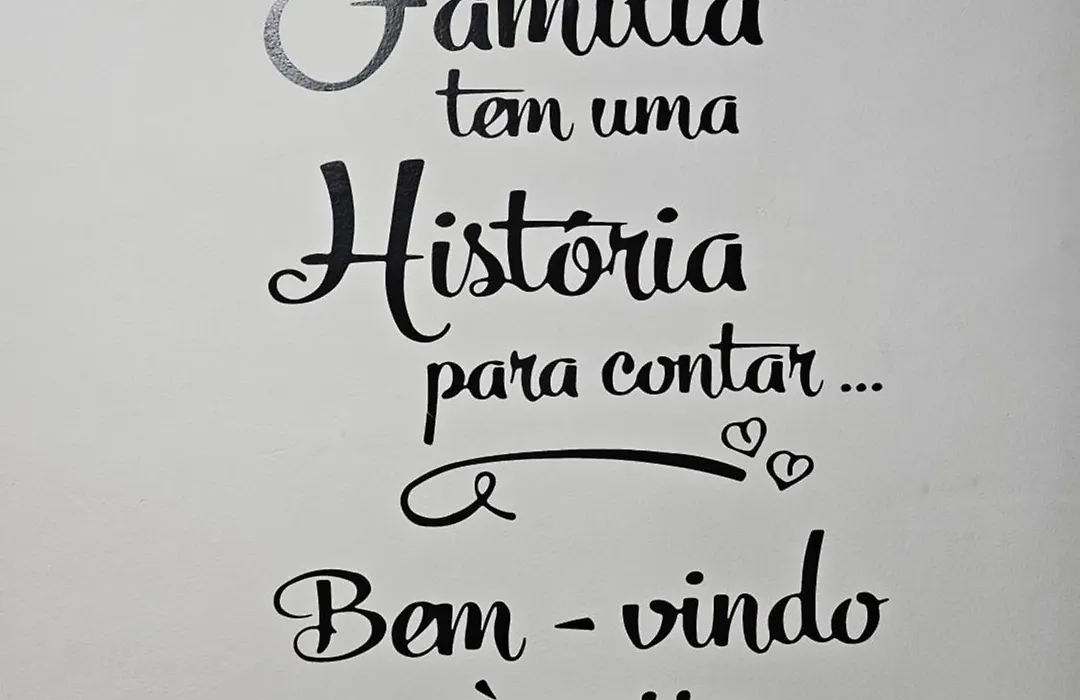 Família
tem uma
História
para contar ...
Bem - vindo